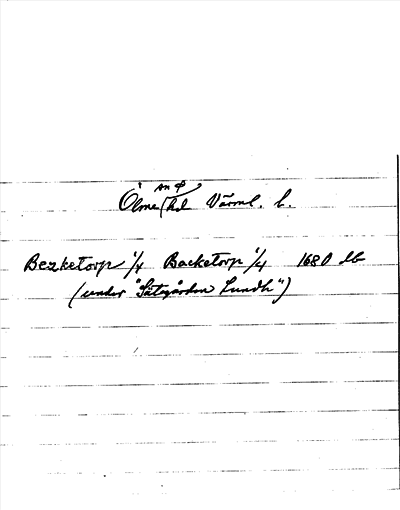 an
Ölme hd Värml. l.
Bezketorp 1/4 Backetorp 1/4 1680 Jb
(under "Sätegården Lundh")